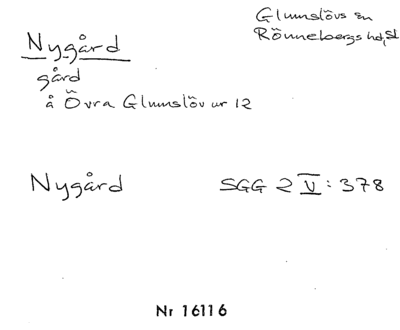 Glumslövs sn
Rönnebergs hd, Sk
Nygård
gård
å Övra Glumslöv nr 12
Nygård SGG 2 V: 378
Nr 16116